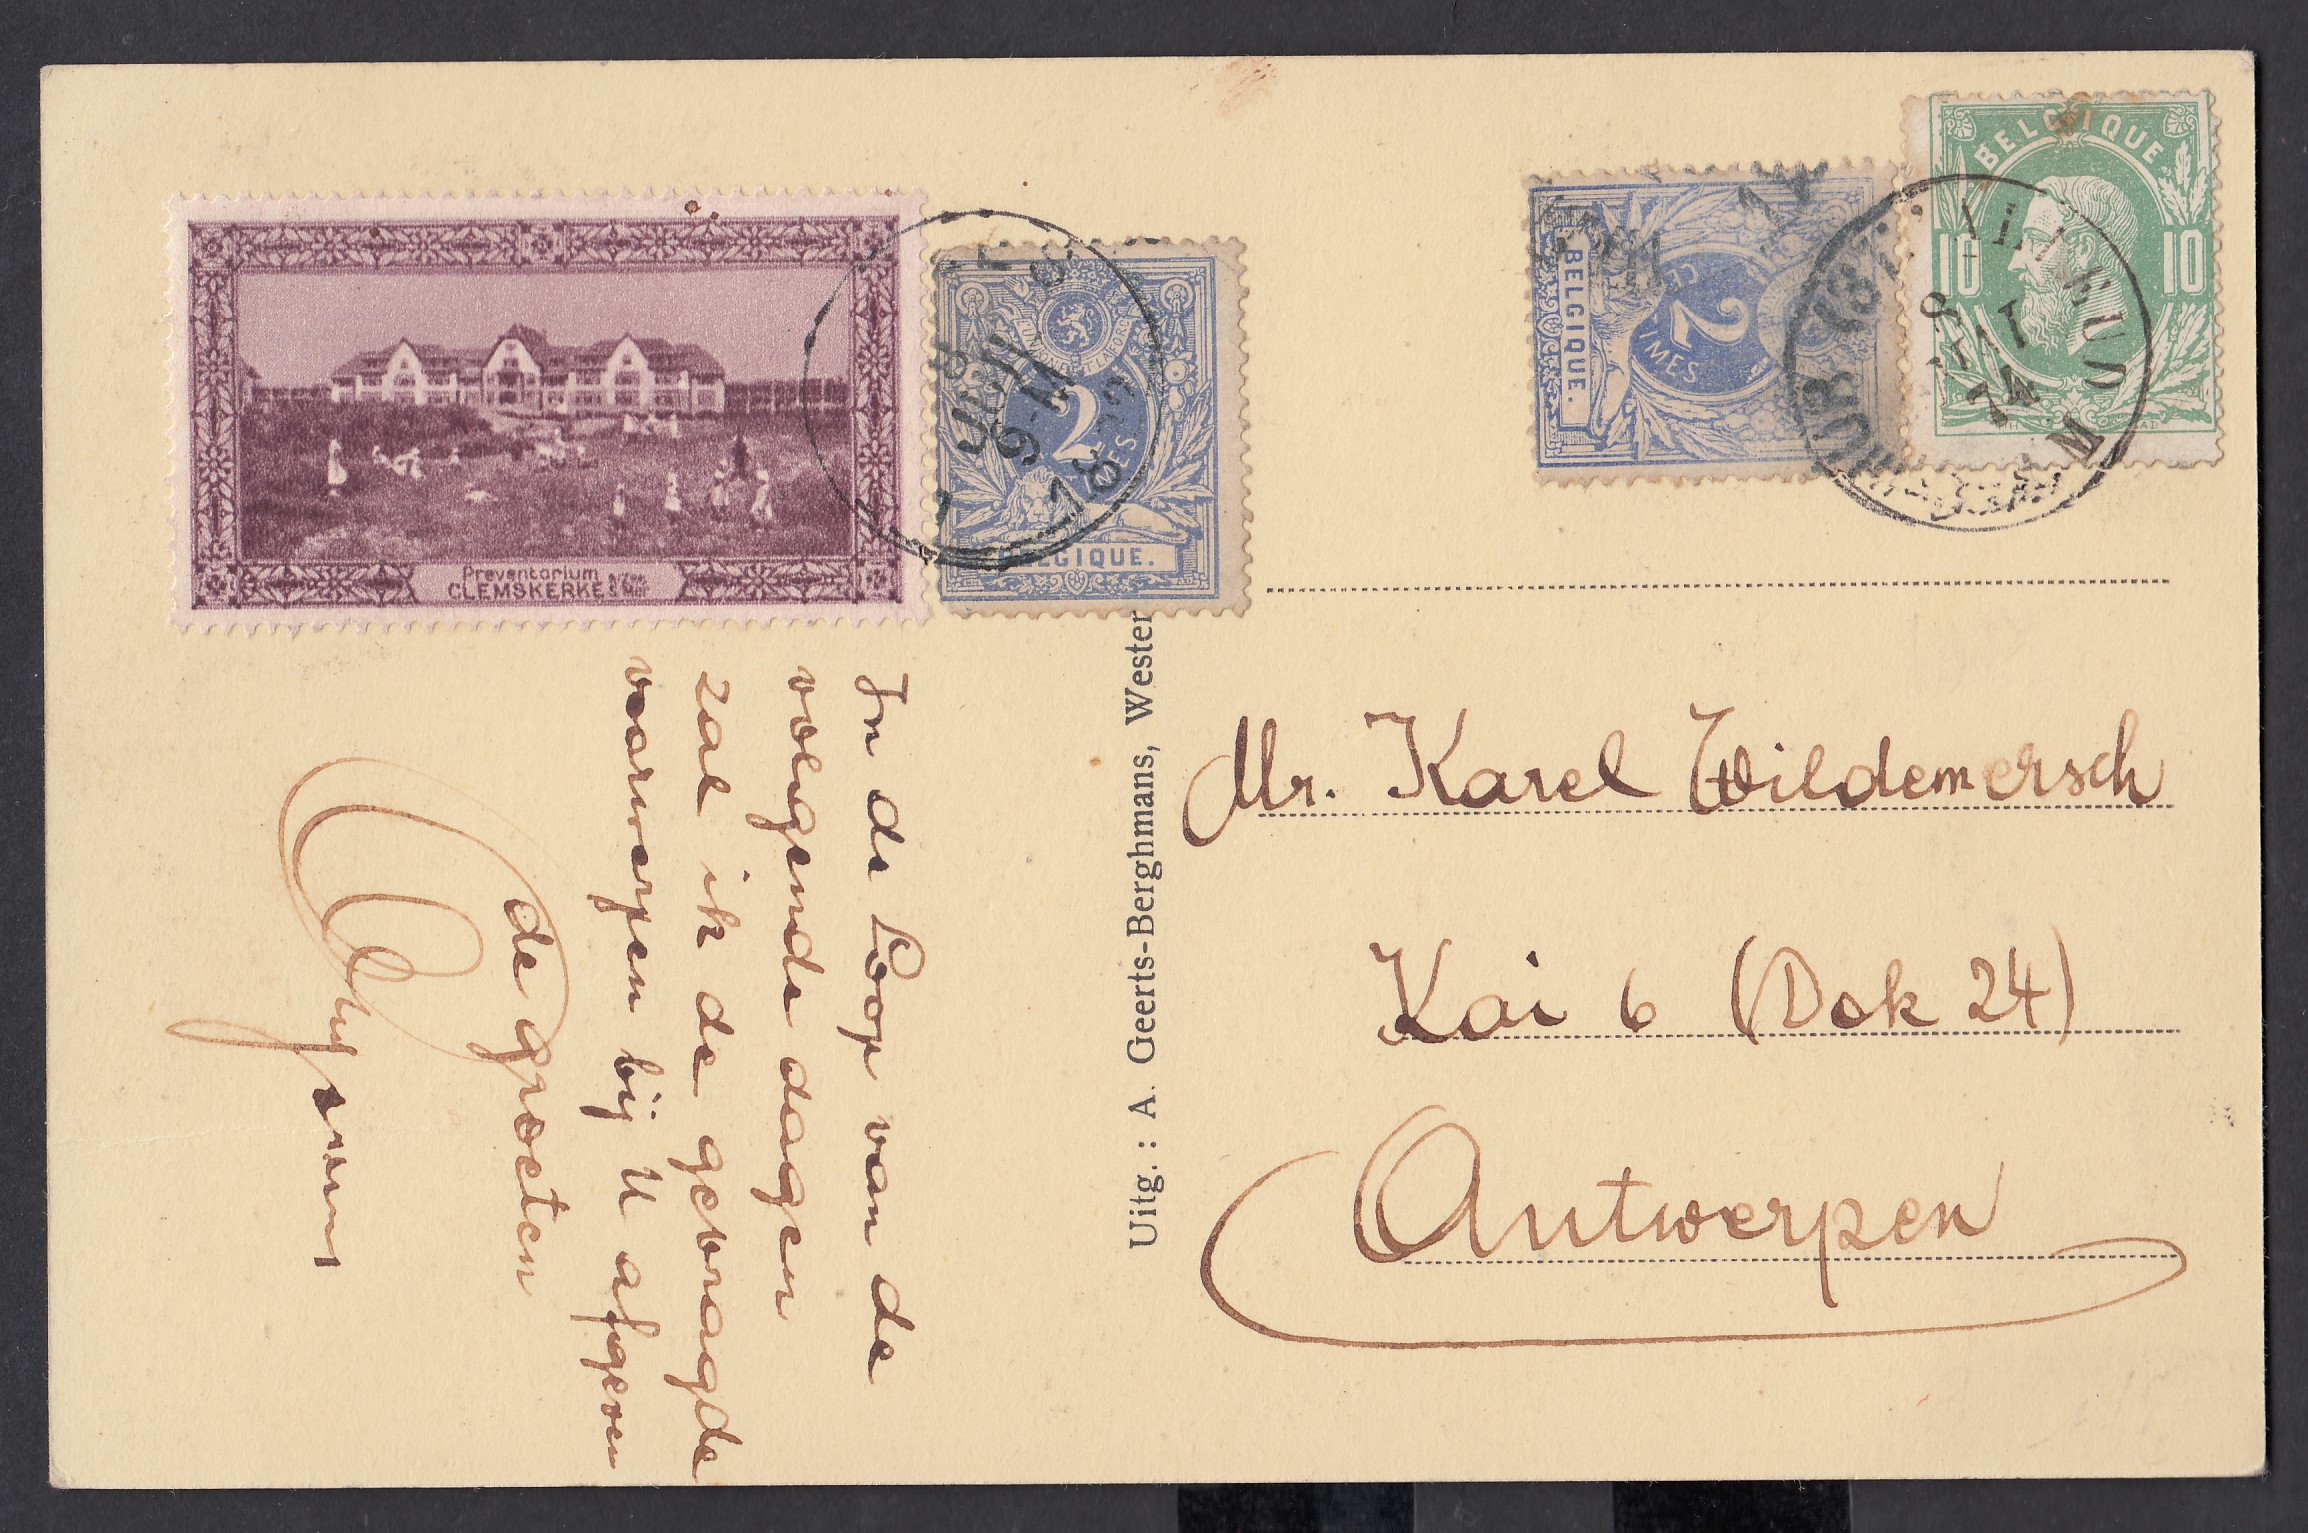 Preventorium a/Zee
CLEMSKERKE S/Mer
BELGIQUE.
2
L'UNION FAIT LA FORCE
BELGIQUE.
2
BELGIQUE
10 10
8
74
In de Loop van de
volgende dagen
zal ik de gevraagde
voorwerpen bij U afgeven
de groeten
Uitg. : A. Geerts-Berghmans, Wester
Mr. Karel Wildemersch
Kai 6 (Dok 24)
Antwerpen